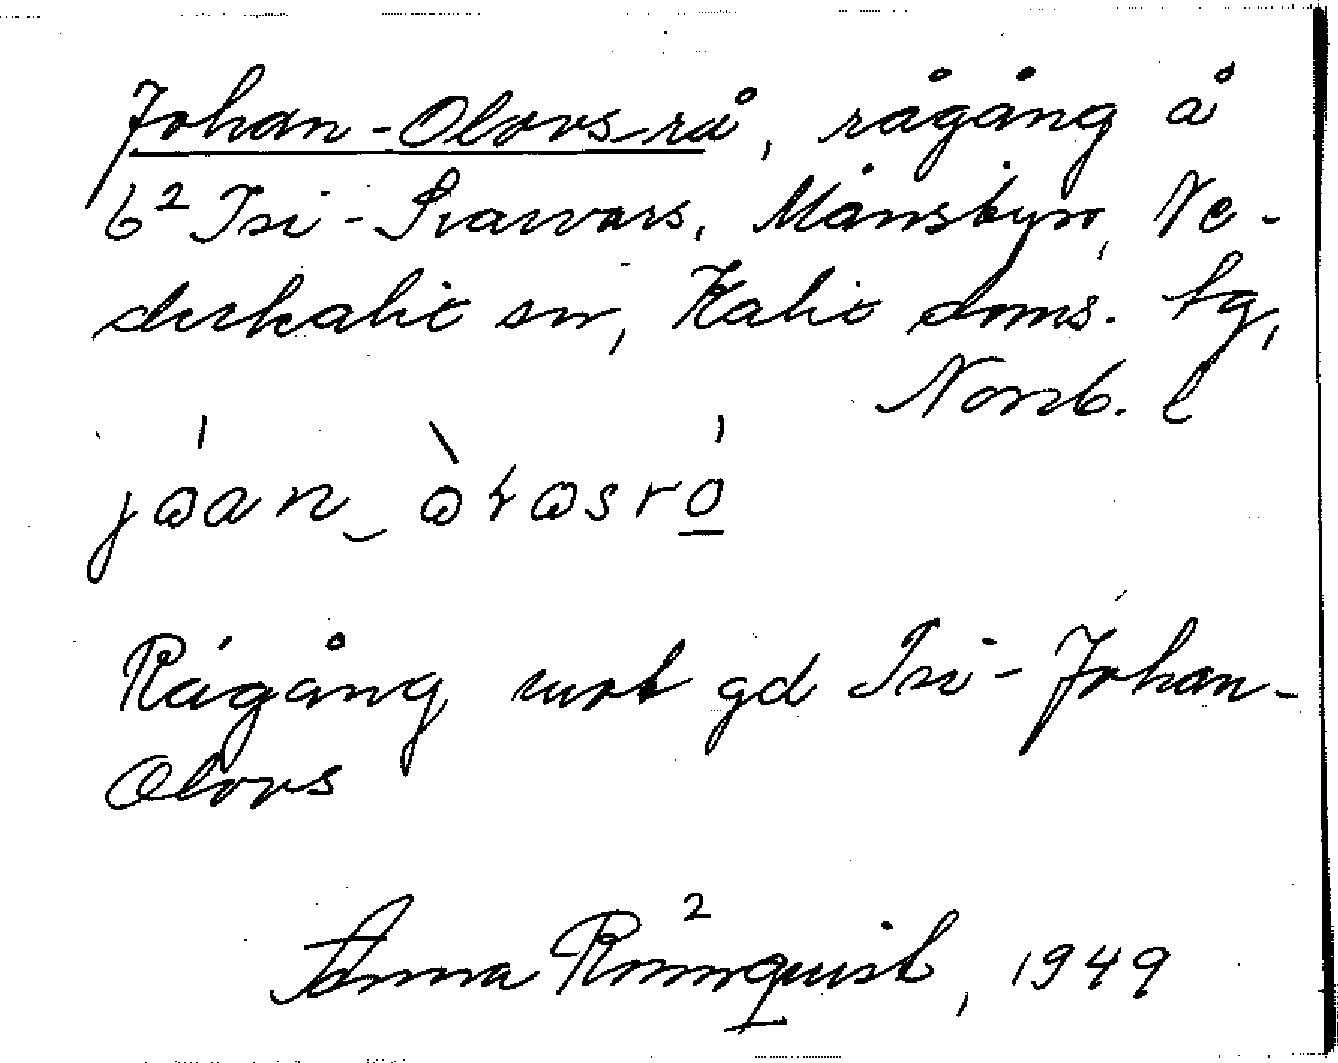 Johan-Olovsrå, rågång å
6² Isi-Ivarvars, Månsbyn, Ne-
derkalix sn, Kalix doms. tg,
Norrb. l
jɷ́an_ɷ̀ƚɷsró̲
Rågång mot gd Isi-Johan-
Olovs
Anna Rönnquist², 1949